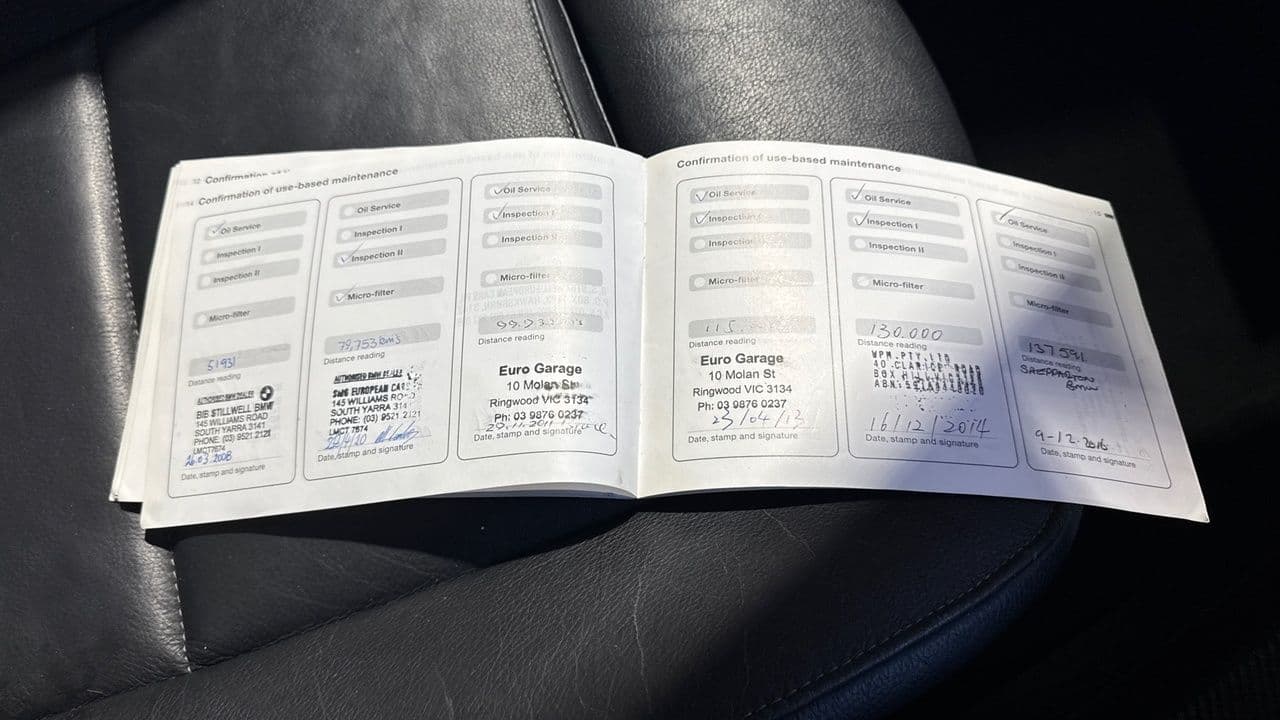 Confirmation of use-based maintenance
Oil Service
Inspection I
Inspection II
Micro-filter
51931
Distance reading
AUTHORISED BMW DEALER
BIB STILLWELL BMW
145 WILLIAMS ROAD
SOUTH YARRA 3141
PHONE: (03) 9521 2121
LMCT7674
26.03.2008
Date, stamp and signature
Oil Service
Inspection I
Inspection II
Micro-filter
79,753 kms
Distance reading
AUTHORISED BMW DEALER
SMG EUROPEAN CARS
145 WILLIAMS ROAD
SOUTH YARRA 3141
PHONE: (03) 9521 2121
LMCT 7674
Date, stamp and signature
Oil Service
Inspection I
Inspection II
Micro-filter
Distance reading
Euro Garage
10 Molan St
Ringwood VIC 3134
Ph: 03 9876 0237
Date, stamp and signature
Confirmation of use-based maintenance
Oil Service
Inspection I
Inspection II
Micro-filter
115
Distance reading
Euro Garage
10 Molan St
Ringwood VIC 3134
Ph: 03 9876 0237
23/04/13
Date, stamp and signature
Oil Service
Inspection I
Inspection II
Micro-filter
130.000
Distance reading
WPM.PTY.LTD
BOX HILL
16/12/2014
Date, stamp and signature
Oil Service
Inspection I
Inspection II
Micro-filter
137591
Distance reading
SHEPPARTON
BMW
9-12.2016
Date, stamp and signature